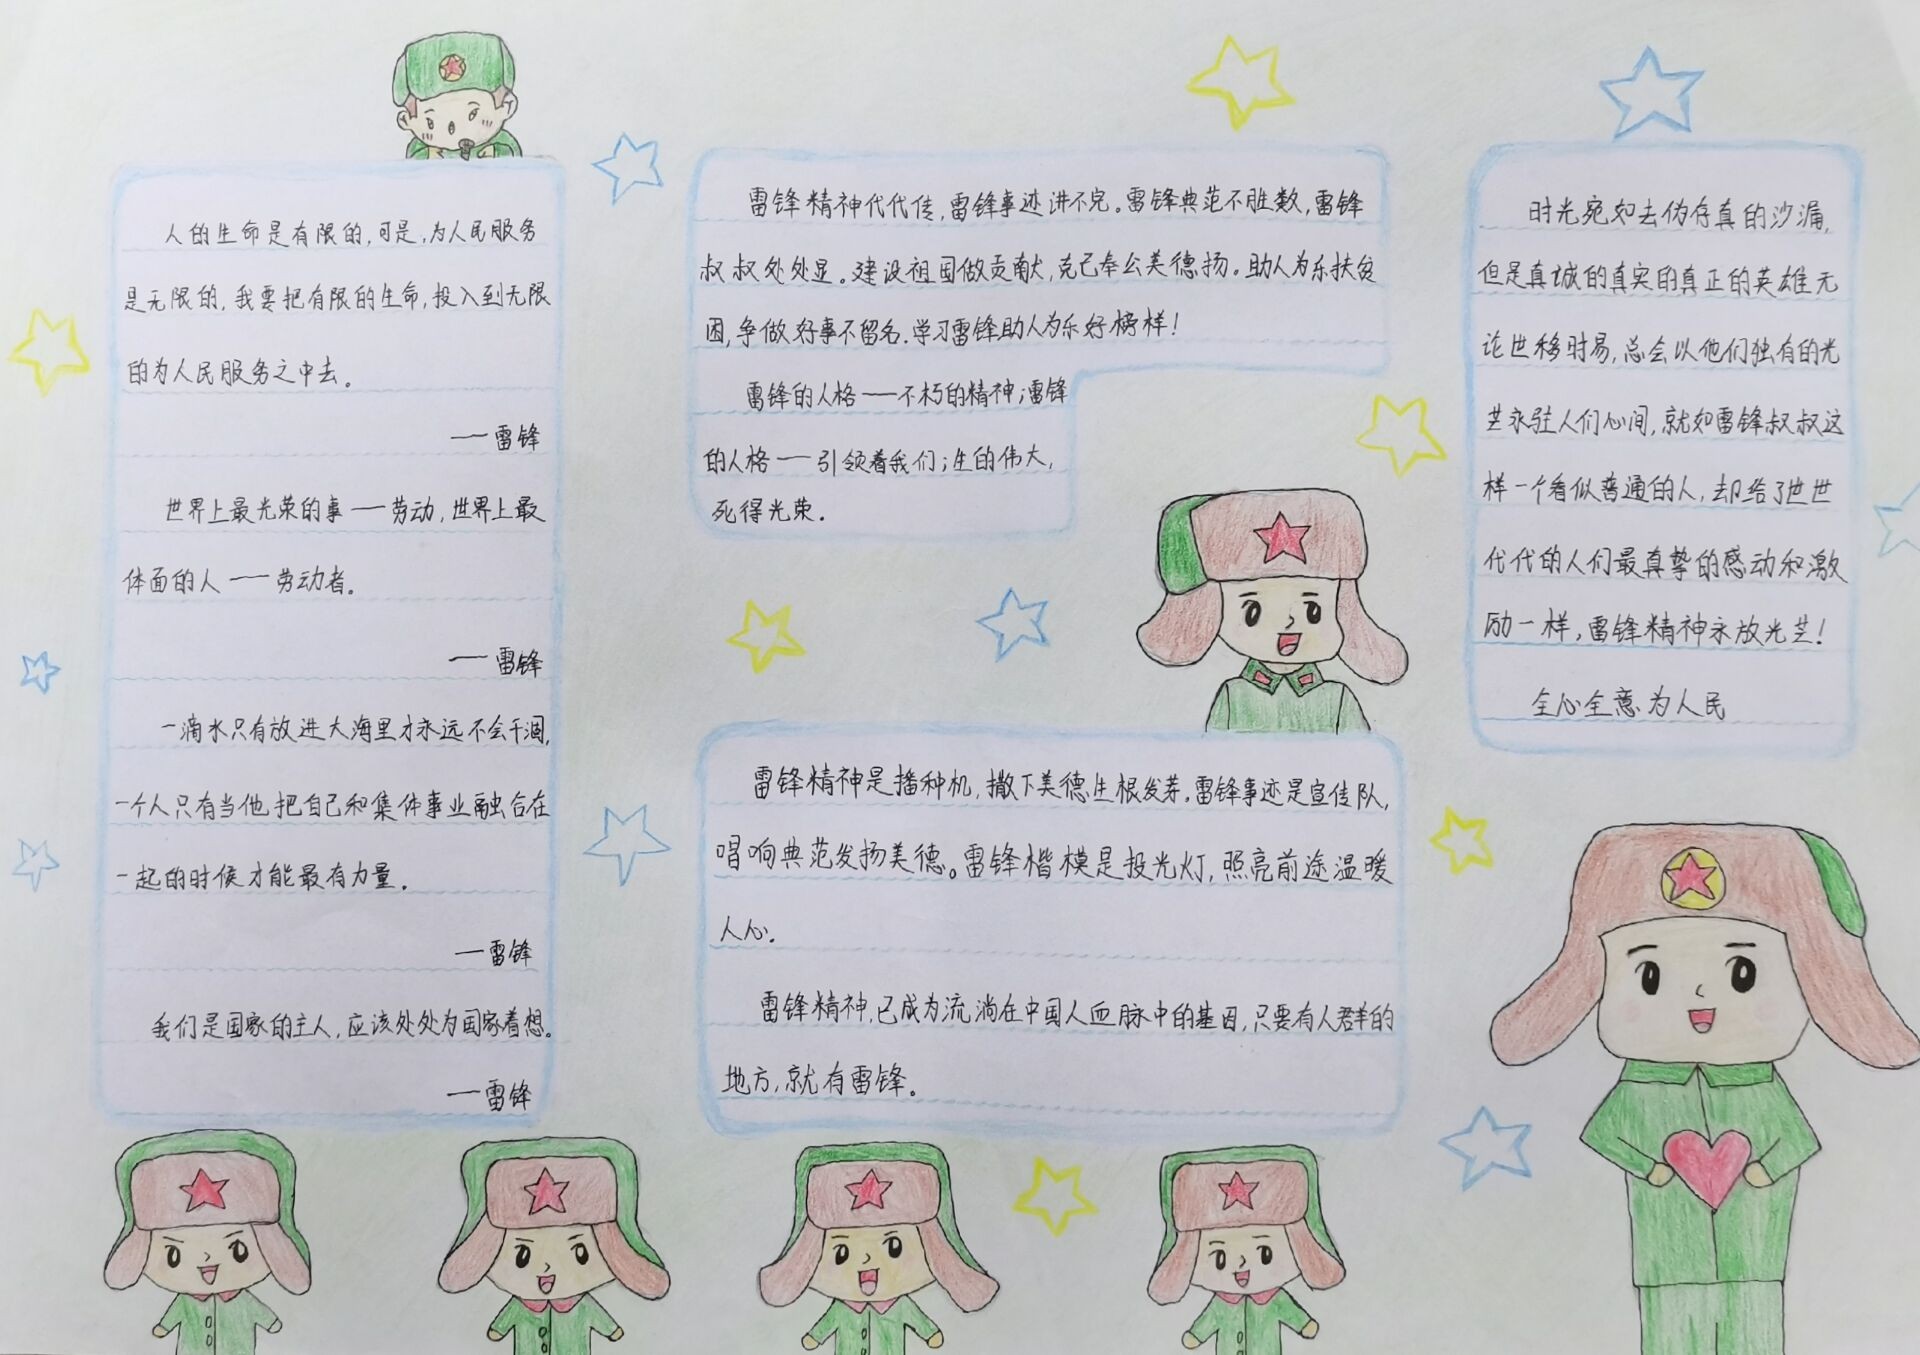 人的生命是有限的,可是,为人民服务
是无限的,我要把有限的生命,投入到无限
的为人民服务之中去。
——雷锋
世界上最光荣的事——劳动,世界上最
体面的人——劳动者。
——雷锋
一滴水只有放进大海里才永远不会干涸,
一个人只有当他把自己和集体事业融合在
一起的时候才能最有力量。
——雷锋
我们是国家的主人,应该处处为国家着想。
——雷锋
雷锋精神代代传,雷锋事迹讲不完。雷锋典范不胜数,雷锋
叔叔处处显。建设祖国做贡献,克己奉公美德扬。助人为乐扶贫
困,争做好事不留名.学习雷锋助人为乐好榜样!
雷锋的人格——不朽的精神;雷锋
的人格——引领着我们;生的伟大,
死得光荣.
雷锋精神是播种机,撒下美德生根发芽。雷锋事迹是宣传队,
唱响典范发扬美德。雷锋楷模是投光灯,照亮前途温暖
人心.
雷锋精神,已成为流淌在中国人血脉中的基因,只要有人群的
地方,就有雷锋。
时光宛如去伪存真的沙漏,
但是真诚的真实的真正的英雄无
论世移时易,总会以他们独有的光
芒永驻人们心间,就如雷锋叔叔这
样一个看似普通的人,却给了世世
代代的人们最真挚的感动和激
励一样,雷锋精神永放光芒!
全心全意为人民